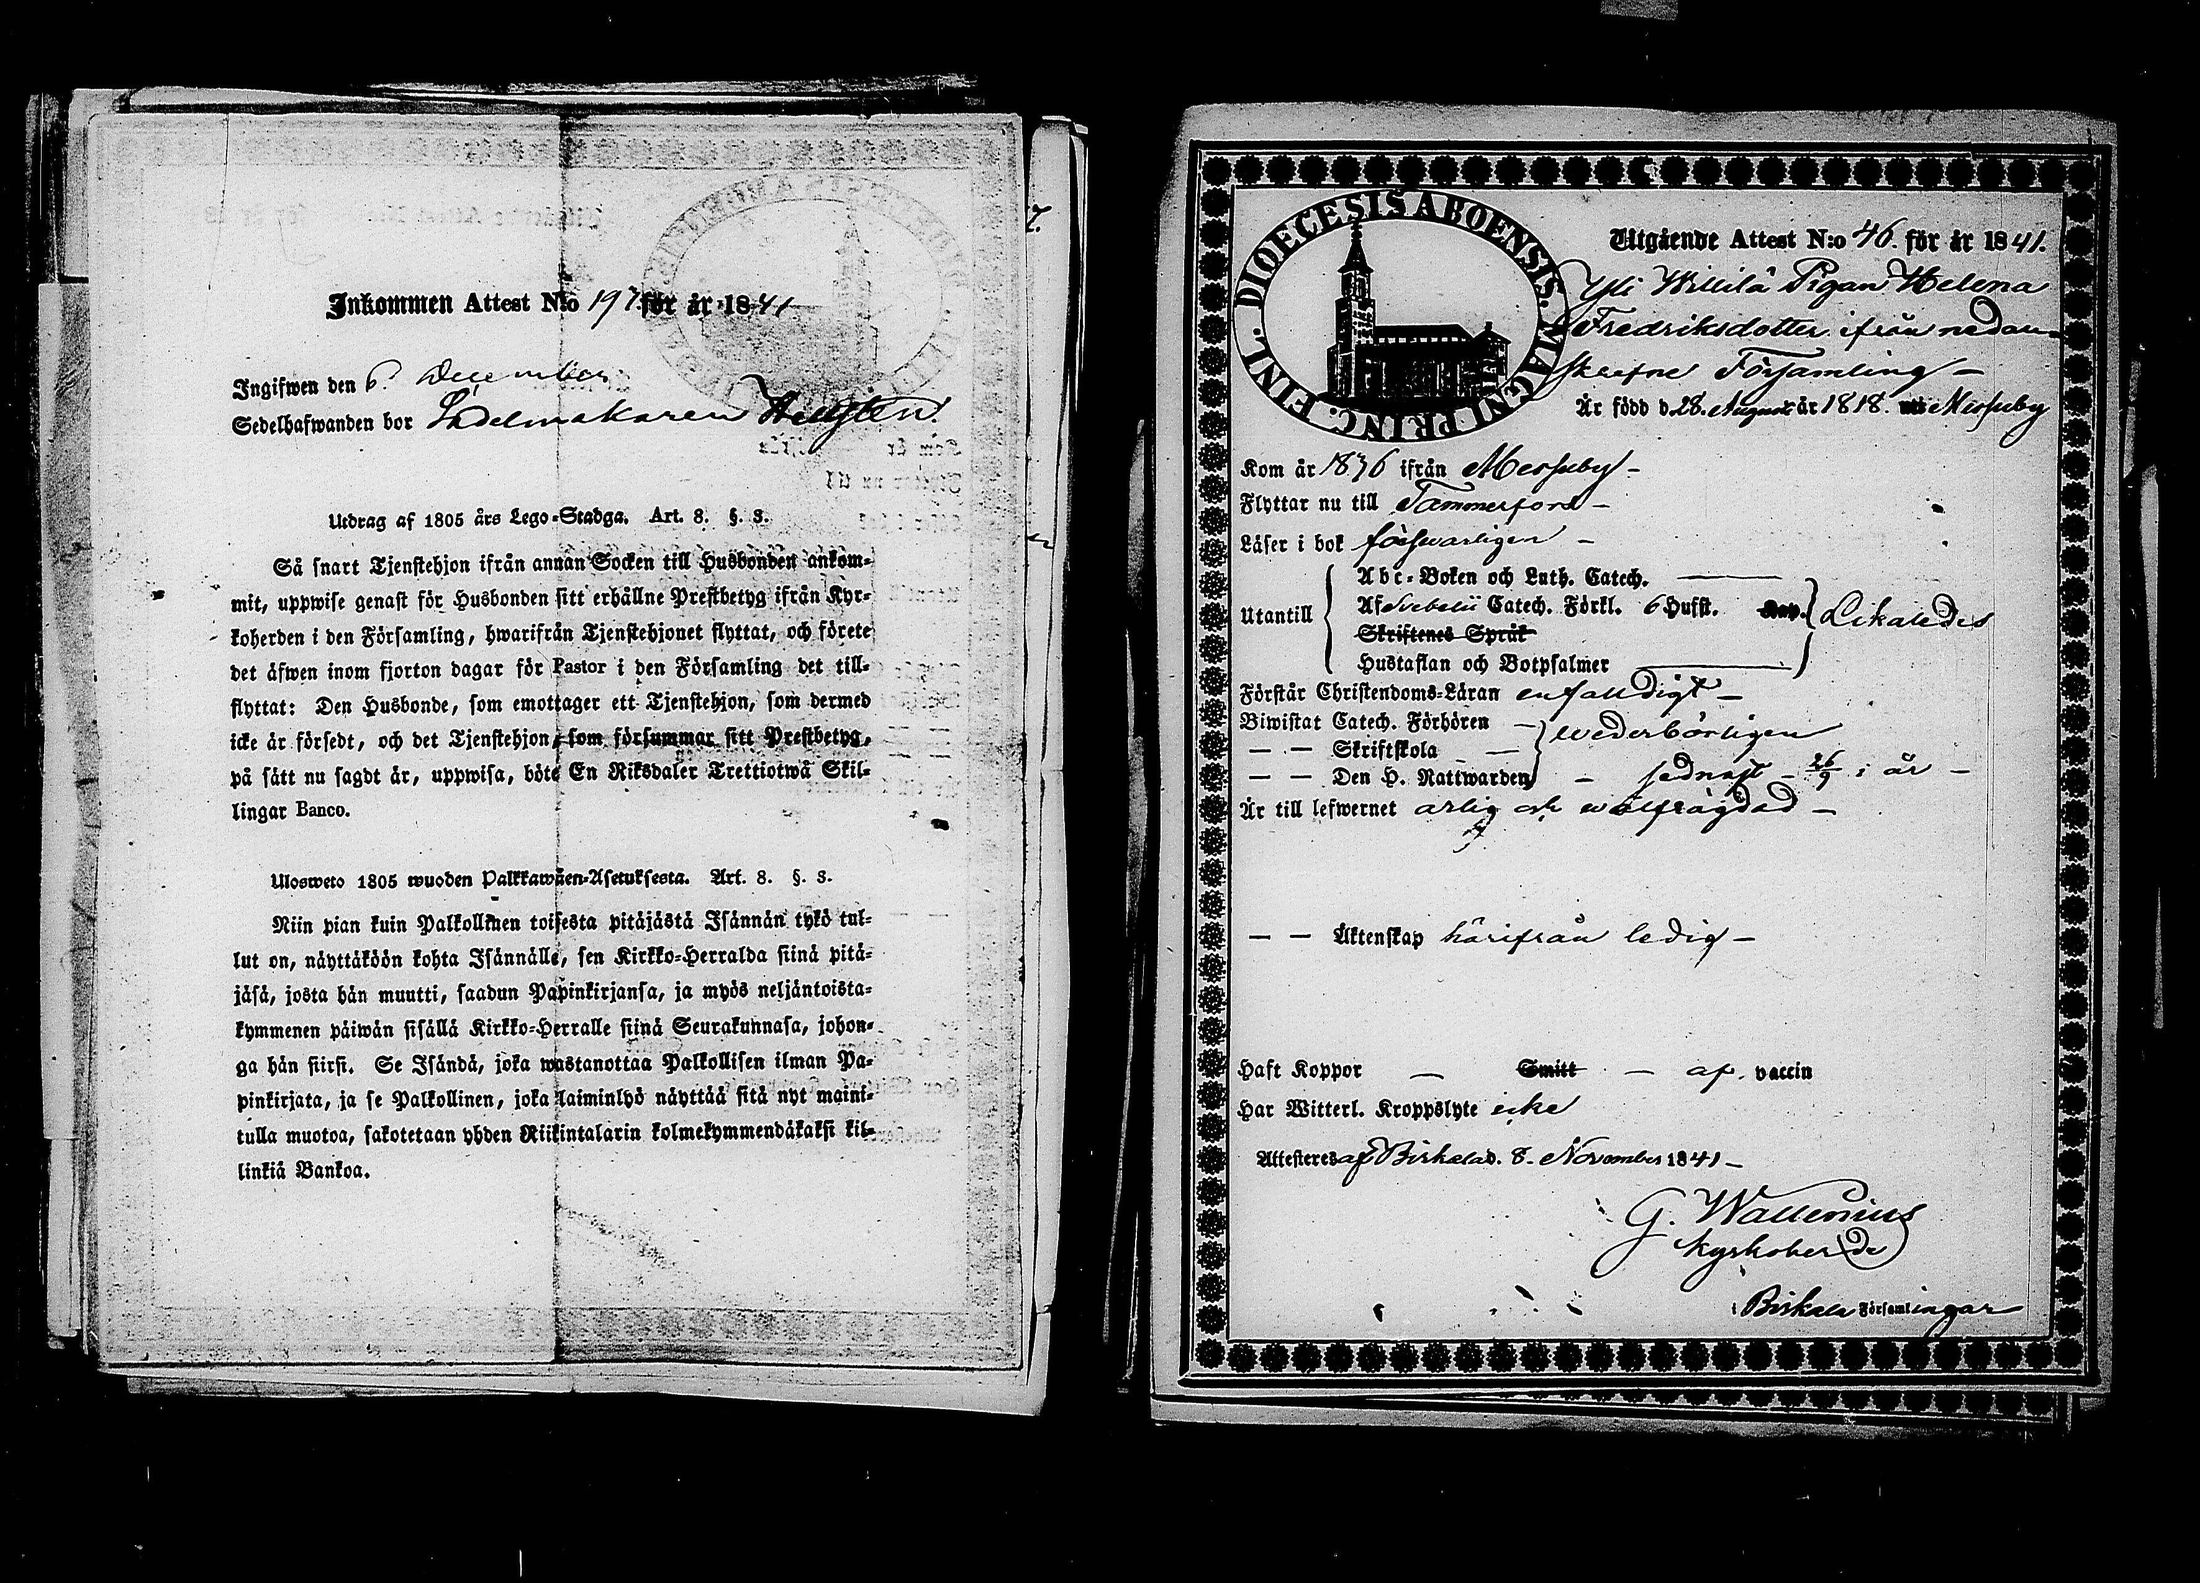 Inkommen Attest N:o 197 för år 1841
Ingifwen den 6. December
Sedelhafwanden bor Sadelmakaren Hellsten.
Utdrag af 1805 års Lego-Stadga. Art. 8. §. 3.
Så snart Tjenstehjon ifrån annan Socken till Husbonden ankom-
mit, uppwise genast för Husbonden sitt erhållne Prestbetyg ifrån Kyr-
koherden i den Församling, hwarifrån Tjenstehjonet flyttat, och förete
det äfwen inom fjorton dagar för Pastor i den Församling det till-
flyttat: Den Husbonde, som emottager ett Tjenstehjon, som dermed
icke är försedt, och det Tjenstehjon, som försummar sitt Prestbetyg,
på sätt nu sagdt är, uppwisa, böte En Riksdaler Trettiotwå Skil-
lingar Banco.
Ulosweto 1805 wuoden Palkkawäen-Asetuksesta. Art. 8. §. 3.
Niin pian kuin Palkollinen toisesta pitäjästä Isännän tykö tul-
lut on, näyttäköön kohta Isännälle, sen Kirkko-Herralda siinä pitä-
jäsä, josta hän muutti, saadun Papinkirjansa, ja myös neljäntoista-
kymmenen päiwän sisällä Kirkko-Herralle siinä Seurakunnasa, johon-
ga hän siirsi. Se Isändä, joka wastanottaa Palkollisen ilman Pa-
pinkirjata, ja se Palkollinen, joka laiminlyö näyttää sitä nyt maini-
tulla muotoa, sakotetaan yhden Riikintalarin kolmekymmendäkaksi kil-
linkiä Bankoa.
FINL. DIOECESIS ABOENSIS. MAGNI PRINC.
Utgående Attest N:o 46. för år 1841.
Yli Willilä Pigan Helena
Fredriksdotter ifrån nedan-
skrifne Församling –
Är född d. 28. Augusti år 1818. i Messuby
Kom år 1836 ifrån Messuby –
Flyttar nu till Tammerfors –
Läser i bok förswarligen –
Abc-Boken och Luth. Catech.
Utantill Af Svebelii Catech. Förkl. 6 Hufst. Likaledes
Skriftenes Språk
Hustaflan och Botpsalmer
Förstår Christendoms-Läran enfaldigt –
Biwistat Catech. Förhören – wederbörligen
— — Skriftskola —
— — Den H. Nattwarden – sednast – 26/9 i år –
Är till lefwernet ärlig och wälfrägdad –
— — Äktenskap härifrån ledig –
Haft Koppor — Smitt — af vaccin
Har Witterl. Kroppslyte icke
Attesteres af Birkala d. 8. November 1841 –
G. Wallenius
Kyrkoherde
i Birkala Församlingar